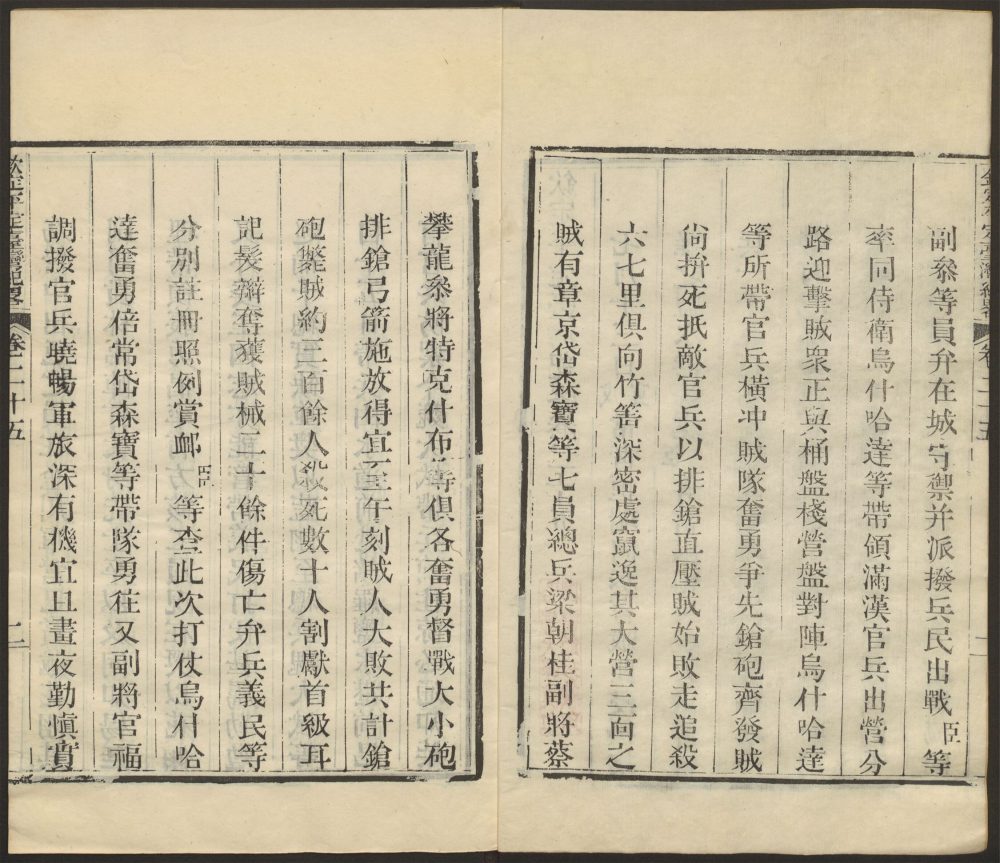 副叅等員弁在城守禦并派撥兵民出戰臣等
率同侍衛烏什哈達等帶領滿漢官兵出營分
路迎擊賊衆正與桶盤棧營盤對陣烏什哈達
等所帶官兵橫冲賊隊奮勇爭先鎗砲齊發賊
尙拚死抵敵官兵以排鎗直壓賊始敗走追殺
六七里俱向竹箐深密處竄逸其大營三面之
賊有章京岱森寶等七員總兵梁朝桂副將蔡
攀龍叅將特克什布等俱各奮勇督戰大小砲
排鎗弓箭施放得宜至午刻賊人大敗共計鎗
砲斃賊約三百餘人殺死數十人割獻首級耳
記髮辮奪獲賊械二十餘件傷亡弁兵義民等
分別註冊照例賞䘏臣等查此次打仗烏什哈
達奮勇倍常岱森寶等帶隊勇往又副將官福
調撥官兵曉暢軍旅深有機宜且晝夜勤慎實
欽定平定臺灣紀畧
卷二十五
二